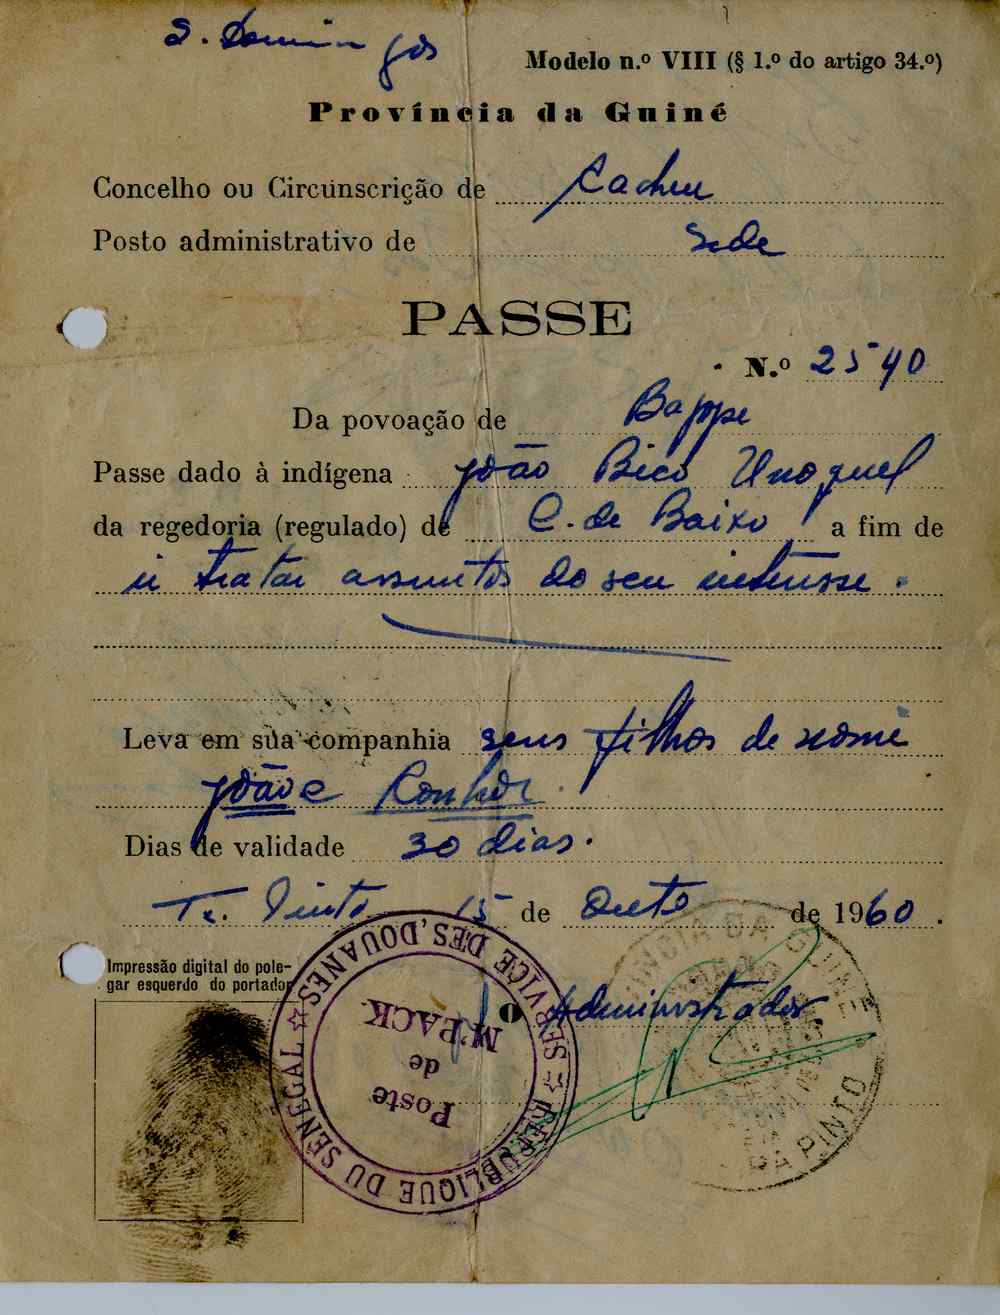 S. Domingos
Modelo n.º VIII (§ 1.º do artigo 34.º)
Província da Guiné
Concelho ou Circunscrição de Cacheu
Posto administrativo de Sede
PASSE
N.º 2540
Da povoação de Bappe
Passe dado à indígena João Bico Unoquel
da regedoria (regulado) de C. de Baixo a fim de
ir tratar assuntos do seu interesse.
Leva em sua companhia seus filhos de nome
João e
Dias de validade 30 dias.
Te. Pinto 15 de Outº de 1960.
Impressão digital do pole-
gar esquerdo do portador
O Administrador
REPUBLIQUE DU SÉNÉGAL ☆ SERVICE DES DOUANES ☆
Poste
de
M'PACK
PROVINCIA DA GUINÉ
PINTO